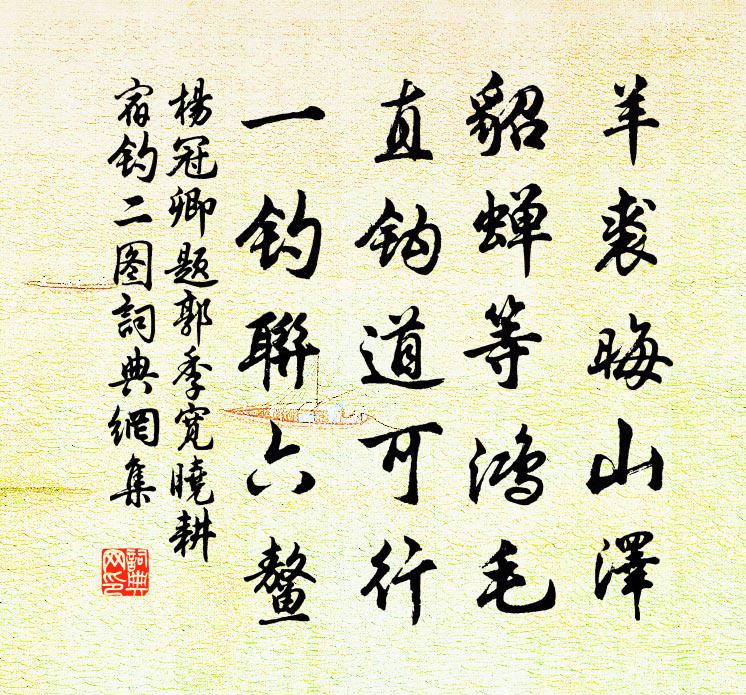 羊裘晦山澤
貂蝉等鴻毛
直鈎道可行
一釣聯六鰲
楊冠卿題郭季寬曉耕
宿釣二图詞典網集
詞典网印